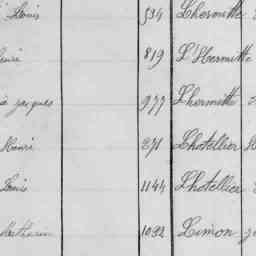 Louis 534 Lhermitte
819 L'Hermitte
jacques 977 Lhermitte
Henri 271 Lhotellier
Louis 1144 Lhotellier
1092 Limon